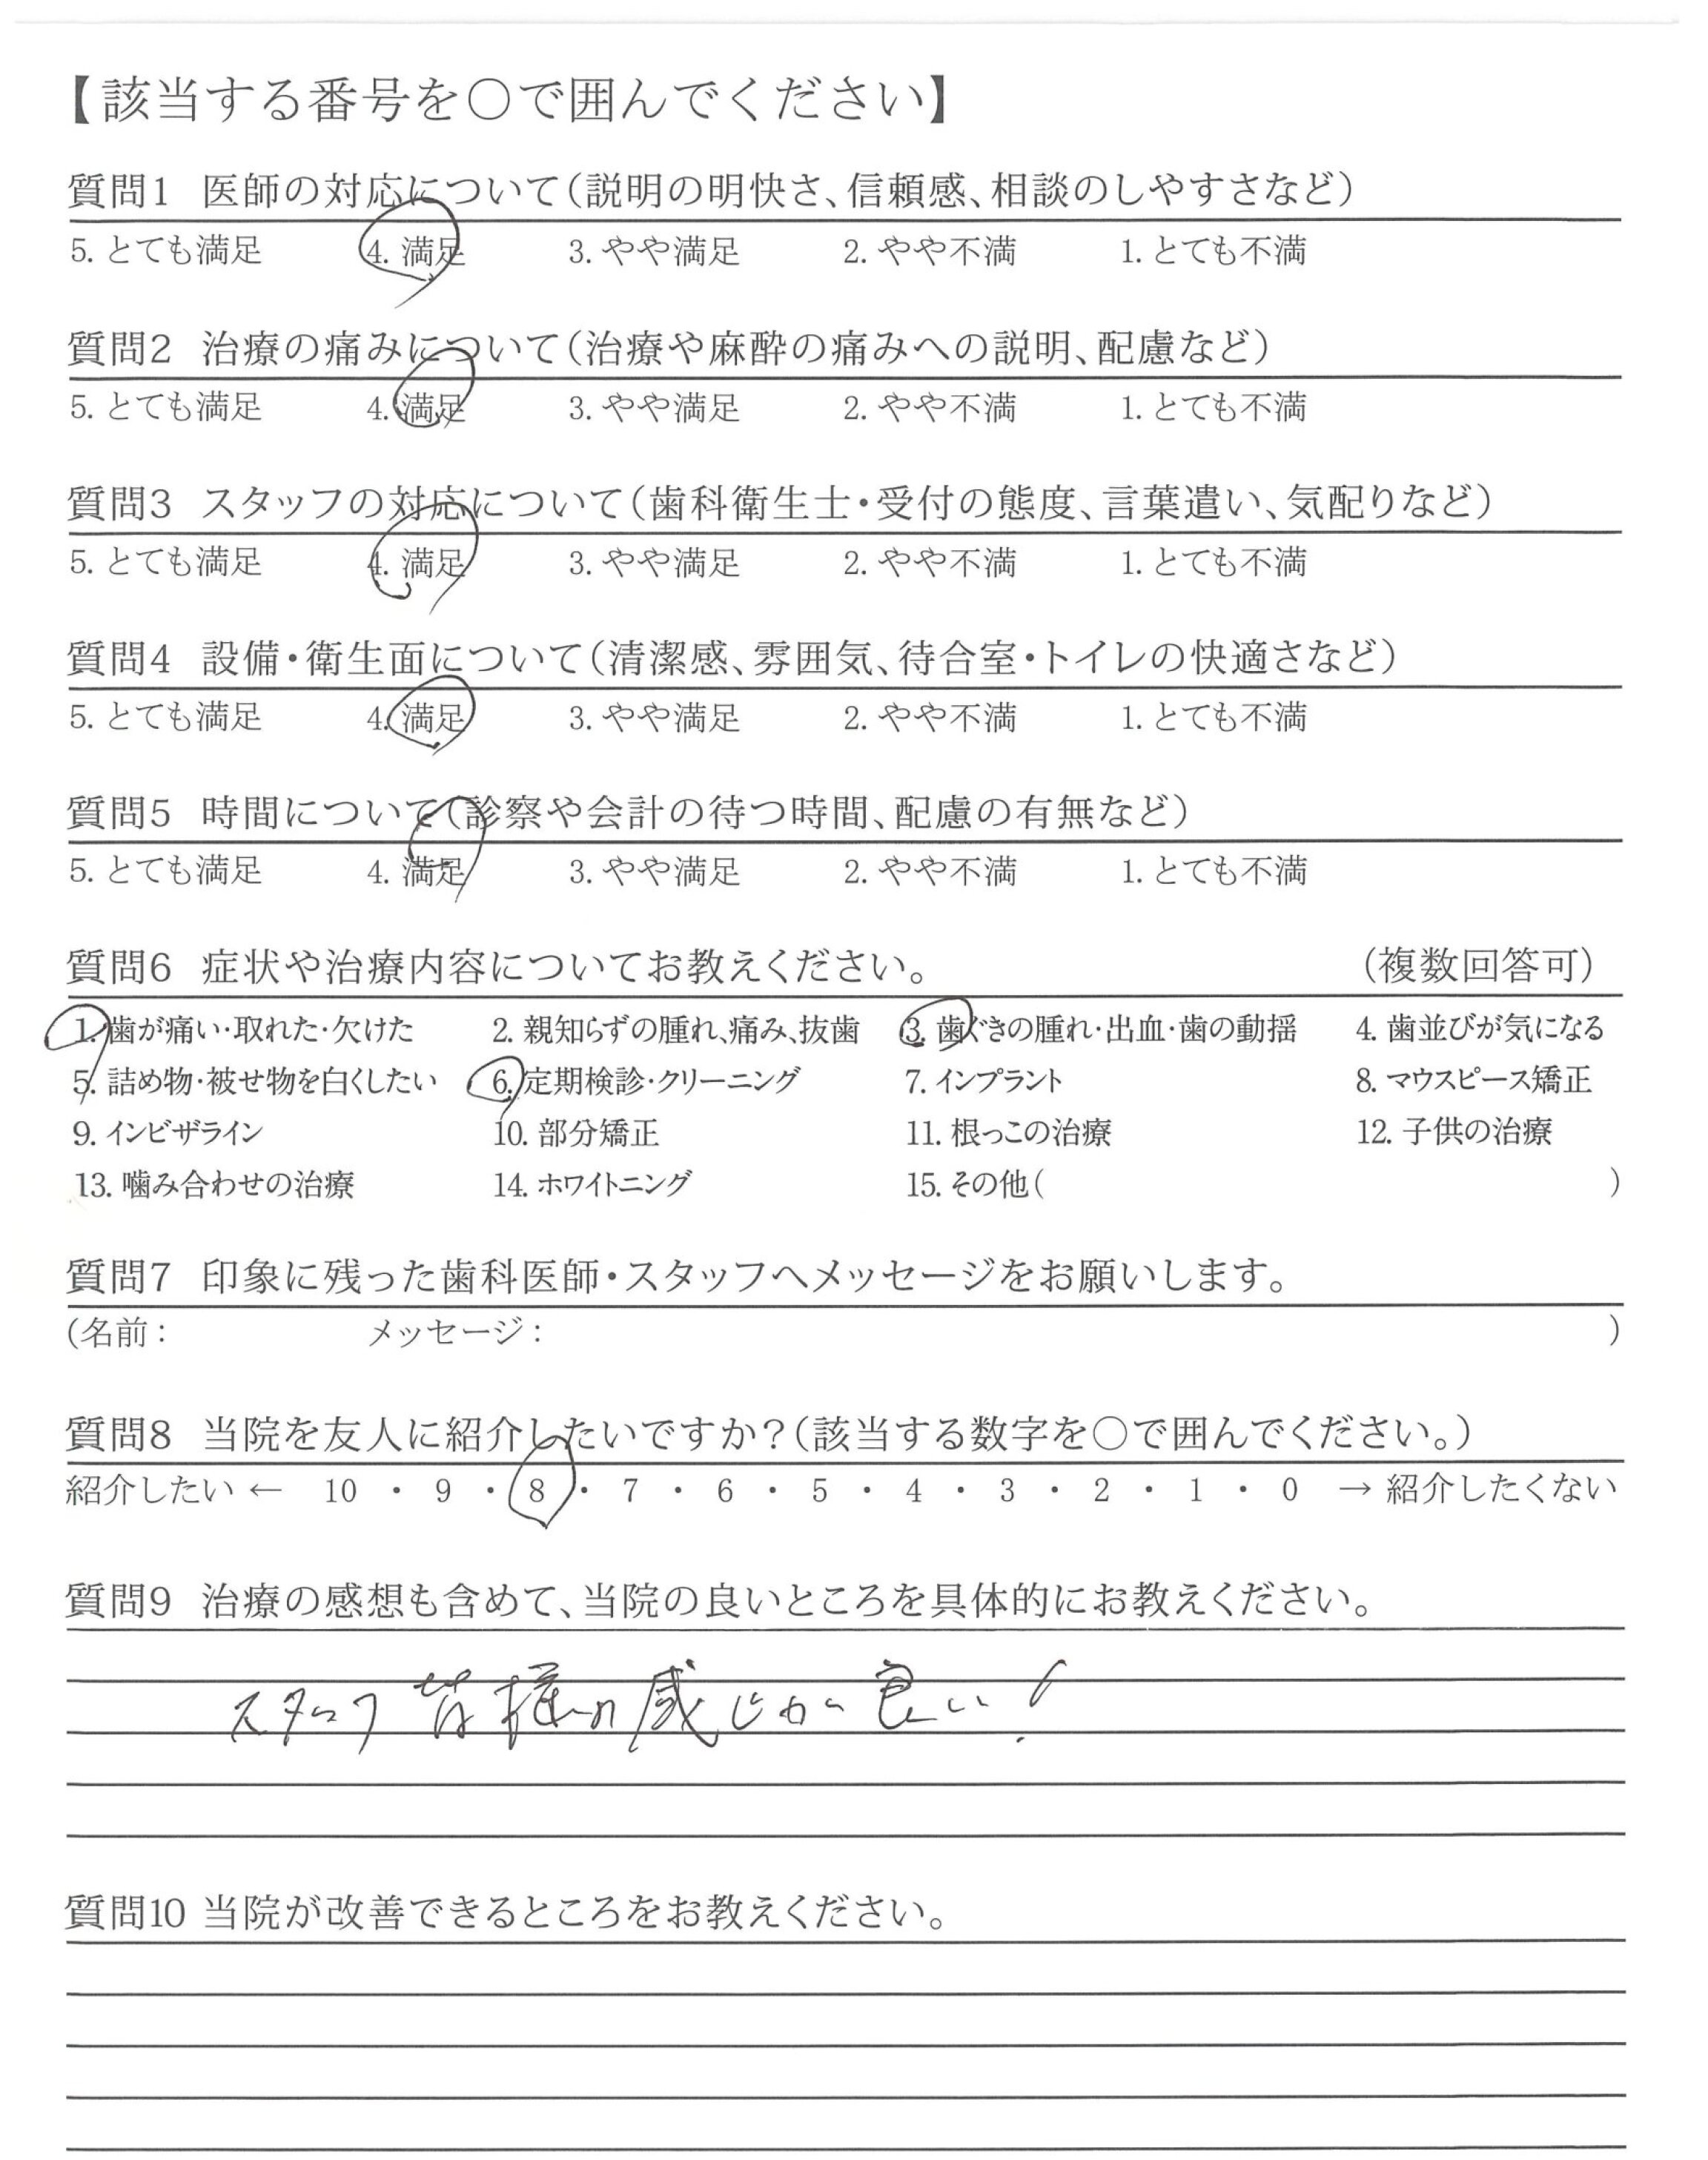 【該当する番号を○で囲んでください】
質問1 医師の対応について（説明の明快さ、信頼感、相談のしやすさなど）
5. とても満足 4. 満足 3. やや満足 2. やや不満 1. とても不満
質問2 治療の痛みについて（治療や麻酔の痛みへの説明、配慮など）
5. とても満足 4. 満足 3. やや満足 2. やや不満 1. とても不満
質問3 スタッフの対応について（歯科衛生士・受付の態度、言葉遣い、気配りなど）
5. とても満足 4. 満足 3. やや満足 2. やや不満 1. とても不満
質問4 設備・衛生面について（清潔感、雰囲気、待合室・トイレの快適さなど）
5. とても満足 4. 満足 3. やや満足 2. やや不満 1. とても不満
質問5 時間について（診察や会計の待つ時間、配慮の有無など）
5. とても満足 4. 満足 3. やや満足 2. やや不満 1. とても不満
質問6 症状や治療内容についてお教えください。 （複数回答可）
1. 歯が痛い・取れた・欠けた 2. 親知らずの腫れ、痛み、抜歯 3. 歯ぐきの腫れ・出血・歯の動揺 4. 歯並びが気になる
5. 詰め物・被せ物を白くしたい 6. 定期検診・クリーニング 7. インプラント 8. マウスピース矯正
9. インビザライン 10. 部分矯正 11. 根っこの治療 12. 子供の治療
13. 噛み合わせの治療 14. ホワイトニング 15. その他（ ）
質問7 印象に残った歯科医師・スタッフへメッセージをお願いします。
（名前： メッセージ： ）
質問8 当院を友人に紹介したいですか？（該当する数字を○で囲んでください。）
紹介したい ← 10 ・ 9 ・ 8 ・ 7 ・ 6 ・ 5 ・ 4 ・ 3 ・ 2 ・ 1 ・ 0 → 紹介したくない
質問9 治療の感想も含めて、当院の良いところを具体的にお教えください。
スタッフ皆様の感じが良い！
質問10 当院が改善できるところをお教えください。